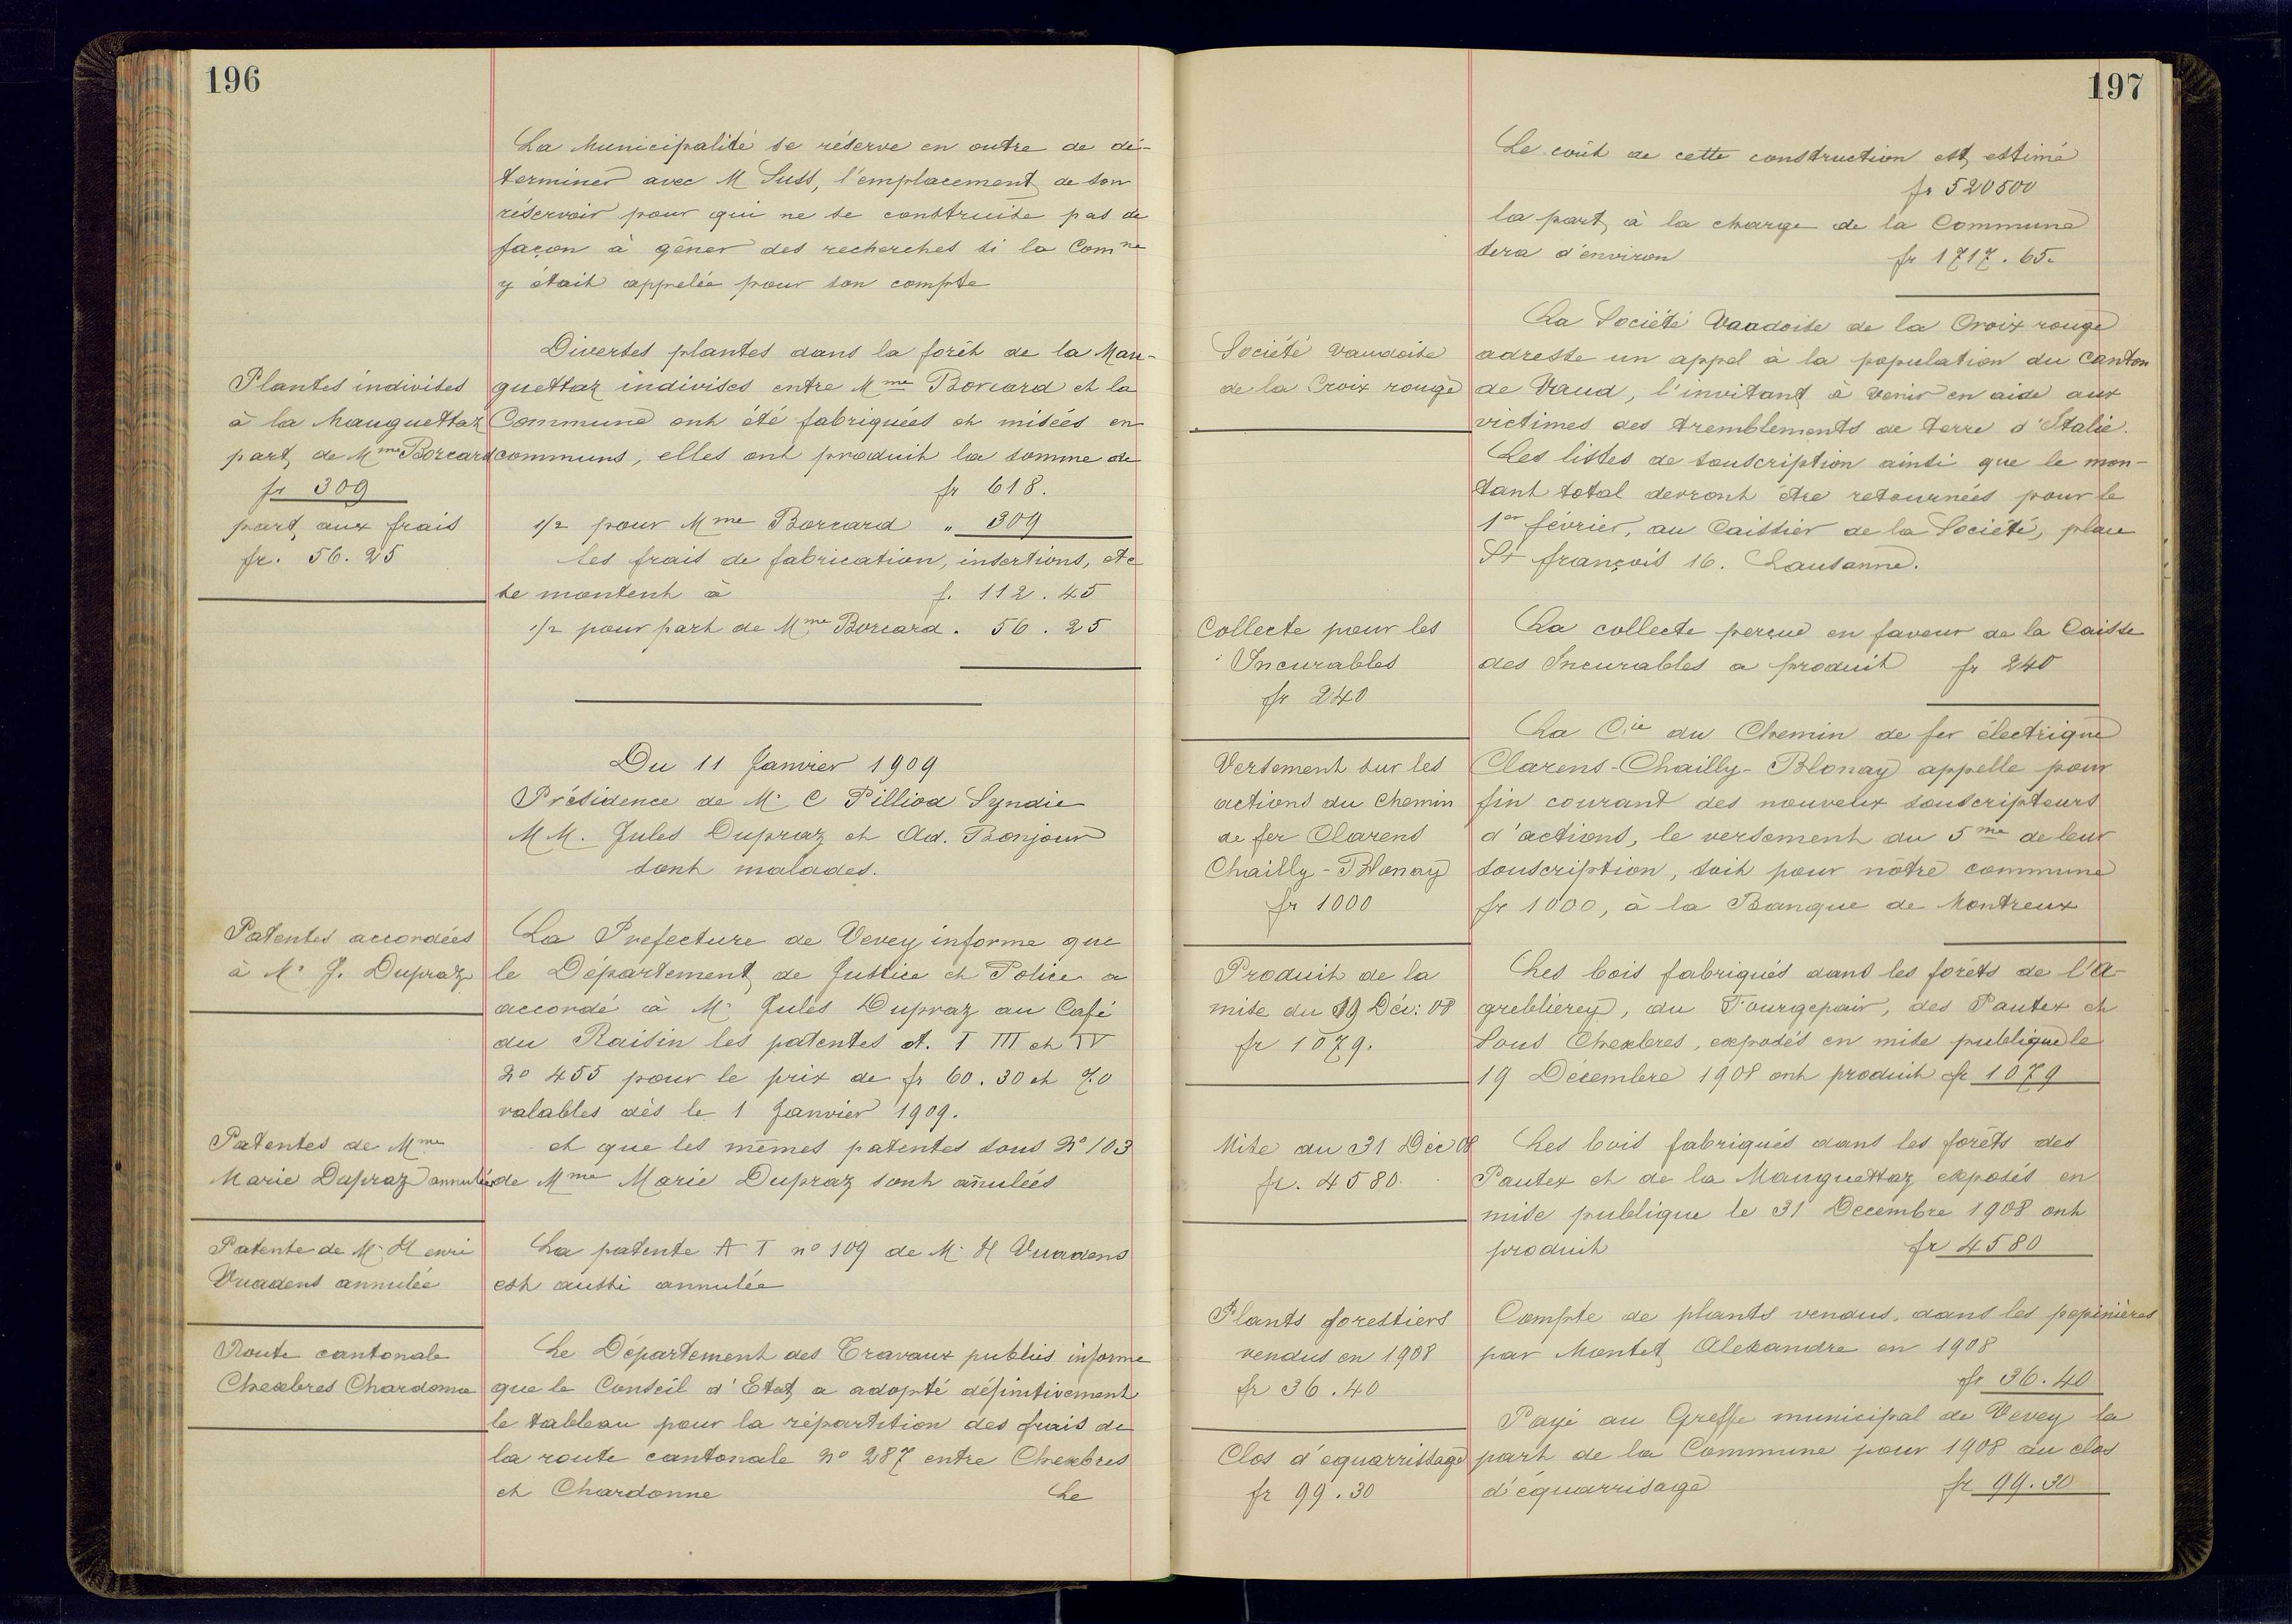 196
La Municipalité se réserve en outre de dé-
terminer avec M Suss, l'emplacement de son
réservoir pour qui ne se construise pas de
façon à gêner des recherches si la Comne
y était appelée pour son compte
Plantes indivises
à la Mauguettaz
part de Mme Borcard
fr 309
part aux frais
fr. 56.25
Diverses plantes dans la forêt de la Mau-
guettaz indivises entre Mme Borcard et la
Commune ont été fabriquées et misées en
communs; elles ont produit la somme de
fr 618.
1/2 pour Mme Borcard " 309
les frais de fabrication, insertions, etc
se montent à f. 112.45
1/2 pour part de Mme Borcard. 56.25
Du 11 Janvier 1909
Présidence de Mr C Pilliod Syndic
MM. Jules Dupraz et Ad. Bonjour
sont malades.
Patentes accordées
à Mr J. Dupraz
La Prefecture de Vevey informe que
le Département de Justice et Police a
accordé à Mr Jules Dupraz au Café
du Raisin les patentes A. I III et IV
No 455 pour le prix de fr 60.30 et 70
valables dès le 1 Janvier 1909.
Patentes de Mme
Marie Dupraz annulées
et que les mêmes patentes sous No 103
de Mme Marie Dupraz sont anulées
Patente de Mr Henri
Vuadens annulée
La patente A I no 109 de Mr H Vuadens
est aussi annulée
Route cantonale
Chexbres Chardonne
Le Département des Travaux publics informe
que le Conseil d'Etat a adopté définitivement
le tableau pour la répartition des frais de
la route cantonale No 287 entre Chexbres
et Chardonne Le
197
Le coût de cette construction est estimé
fr 520500
la part à la charge de la Commune
sera d'environ fr 1717.65.
Société vaudoise
de la Croix rouge
La Société Vaudoise de la Croix rouge
adresse un appel à la population du Canton
de Vaud, l'invitant à venir en aide aux
victimes des tremblements de terre d'Italie.
Les listes de souscription ainsi que le mon-
tant total devront être retournées pour le
1er février, au Caissier de la Société, place
St françois 16. Lausanne.
Collecte pour les
Incurables
fr 240
La collecte perçue en faveur de la Caisse
des Incurables a produit fr 240
Versement sur les
actions du Chemin
de fer Clarens
Chailly-Blonay
fr 1000
La Cie du Chemin de fer électrique
Clarens-Chailly-Blonay appelle pour
fin courant des nouveaux souscripteurs
d'actions, le versement du 5me de leur
souscription, soit pour nôtre commune
fr 1000, à la Banque de Montreux
Produit de la
mise du 19 Déc: 08
fr 1079.
Les bois fabriqués dans les forêts de l'A-
greblierey, du Tourgepair, des Pautex et
Sous Chexbres, exposés en mise publique le
19 Décembre 1908 ont produit fr 1079
Mise du 31 Déc 08
fr. 4580.
Les bois fabriqués dans les forêts des
Pautex et de la Mauguettaz exposés en
mise publique le 31 Decembre 1908 ont
produit fr 4580
Plants forestiers
vendus en 1908
fr 36.40
Compte de plants vendus, dans les pepinières
par Montet Alexandre en 1908
fr 36.40
Clos d'équarrissage
fr 99.30
Payé au Greffe municipal de Vevey la
part de la Commune pour 1908 au clos
d'équarrisage fr 99.30